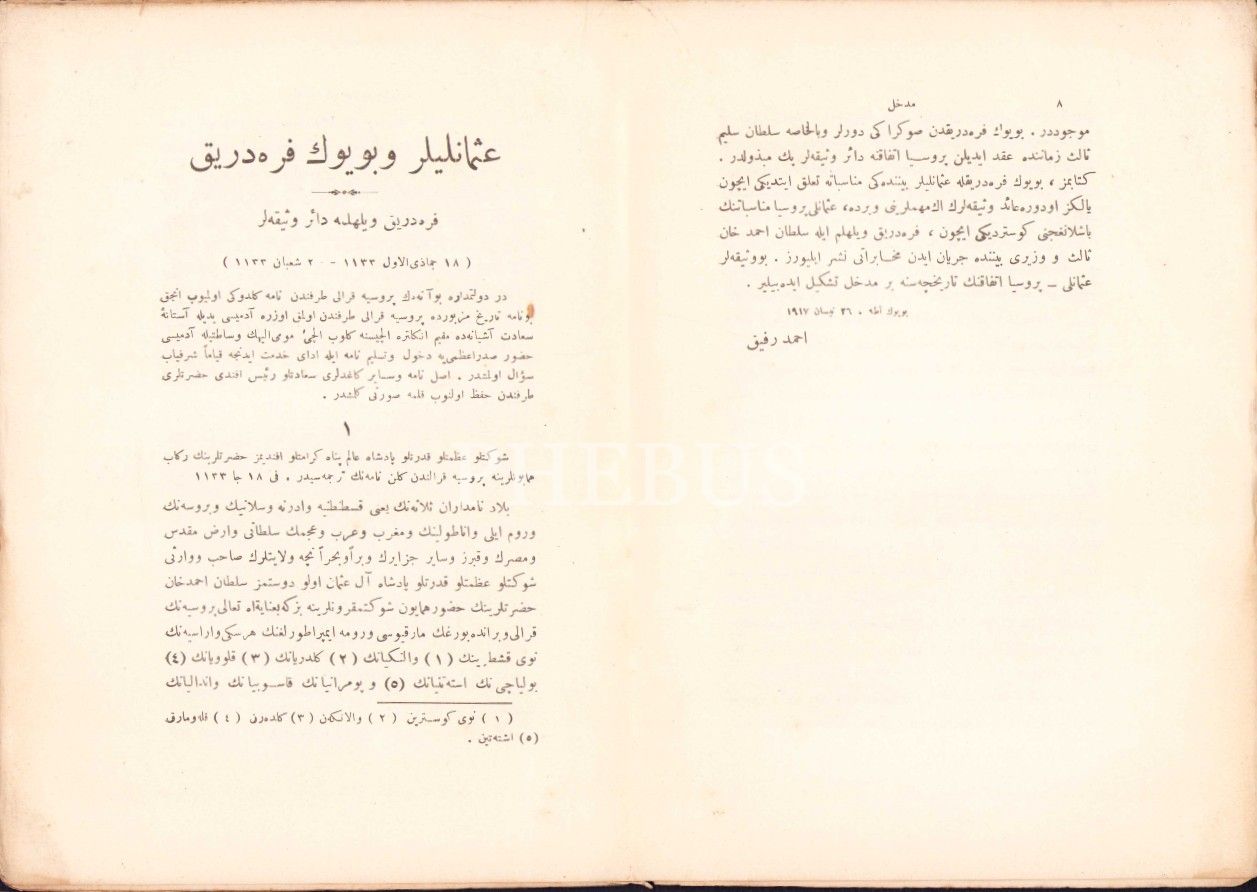 ٨ مدخل
موجوددر . بویوك فره‌دریقدن صوكرا كی دورلر وبالخاصه سلطان سلیم
ثالث زماننده عقد ایدیلن پروسیا اتفاقنه دائر وثیقه‌لر پك مبذولدر .
كتابمز ، بویوك فره‌دریقله عثمانلیلر بیننده‌كی مناسباته تعلق ایتدیكی ایچون
یالكز اودوره عائد وثیقه‌لرك اك مهملرینی ویرده، عثمانلی پروسیا مناسباتنك
باشلانغجنی كوستردیكی ایچون ، فره‌دریق ویلهلم ایله سلطان احمد خان
ثالث و وزیری بیننده جریان ایدن مخابراتی نشر ایلیورز . بووثیقه‌لر
عثمانلی ــ پروسیا اتفاقنك تاریخچه‌سنه بر مدخل تشكیل ایده‌بیلیر .
بویوك اطه . ٢٦ نیسان ١٩١٧
احمد رفیق
عثمانلیلر وبویوك فره‌دریق
فره‌دریق ویلهلمه دائر وثیقه‌لر
( ١٨ جماذی‌الاول ١١٣٣ - ٢٠ شعبان ١١٣٣ )
در دولتمداره بوآنه‌دك پروسیه قرالی طرفندن نامه كلدوكی اولمیوب انجق
بونامه تاریخ مزبورده پروسیه قرالی طرفندن اولمق اوزره آدمیسی یدیله آستانهٔ
سعادت آشیانه‌ده مقیم انكلتره الچیسنه كلوب الچیٔ مومی‌الیهك وساطتیله آدمیسی
حضور صدراعظمی‌یه دخول وتسلیم نامه ایله ادای خدمت ایدنجه قیاماً شرفیاب
سؤال اولمشدر . اصل نامه وسایر كاغدلری سعادتلو رئیس افندی حضرتلری
طرفندن حفظ اولنوب قلمه صورتی كلمشدر .
١
شوكتلو عظمتلو قدرتلو پادشاه عالم پناه كرامتلو افندیمز حضرتلرینك ركاب
همایونلرینه پروسیه قرالندن كلن نامه‌نك ترجمه‌سیدر . فی ١٨ جا ١١٣٣
بلاد نامداران ثلاثه‌نك یعنی قسطنطنیه وادرنه وسلانیك وبروسه‌نك
وروم ایلی واناطولینك ومغرب وعرب وعجمك سلطانی وارض مقدس
ومصرك وقبرز وسایر جزایرك وبراًوبحراً نیچه ولایتلرك صاحب ووارثی
شوكتلو عظمتلو قدرتلو پادشاه آل عثمان اولو دوستمز سلطان احمدخان
حضرتلرینك حضورهمایون شوكتمقرونلرینه بزكه‌بعنایةاﷲ تعالی‌پروسیه‌نك
قرالی‌وبرانده‌بورغك مارقیوسی ورومه ایمپراطورلغنك هرسكی‌واراسیه‌نك
نوی قشطرینك (١) والنكیانك (٢) كلدریانك (٣) قلوویانك (٤)
بولیاچی‌نك استه‌تنیانك (٥) و پومرانیانك قاسوبیانك واندالیانك
(١) نوی كوسترین (٢) والانكن (٣) كلده‌رن (٤) قله‌ومارق
(٥) اشته‌تین .
PHEBUS